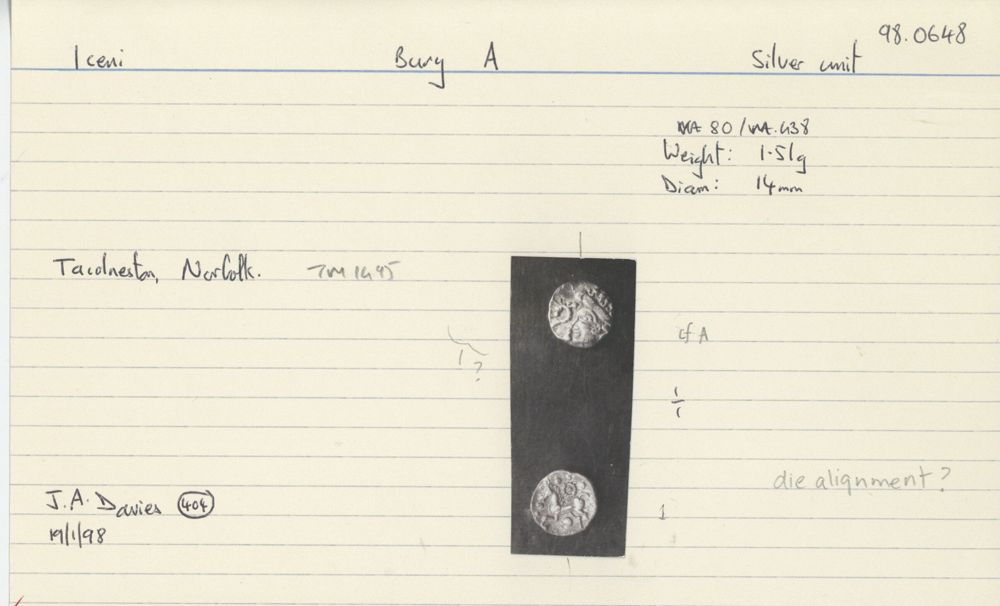 98.0648
Iceni Bury A Silver unit
MA 80/VA.438
Weight: 1.51g
Diam: 14mm
Tacolneston, Norfolk. TM 1495
cf A
?
1
1
die alignment?
J.A. Davies 404
1
19/1/98